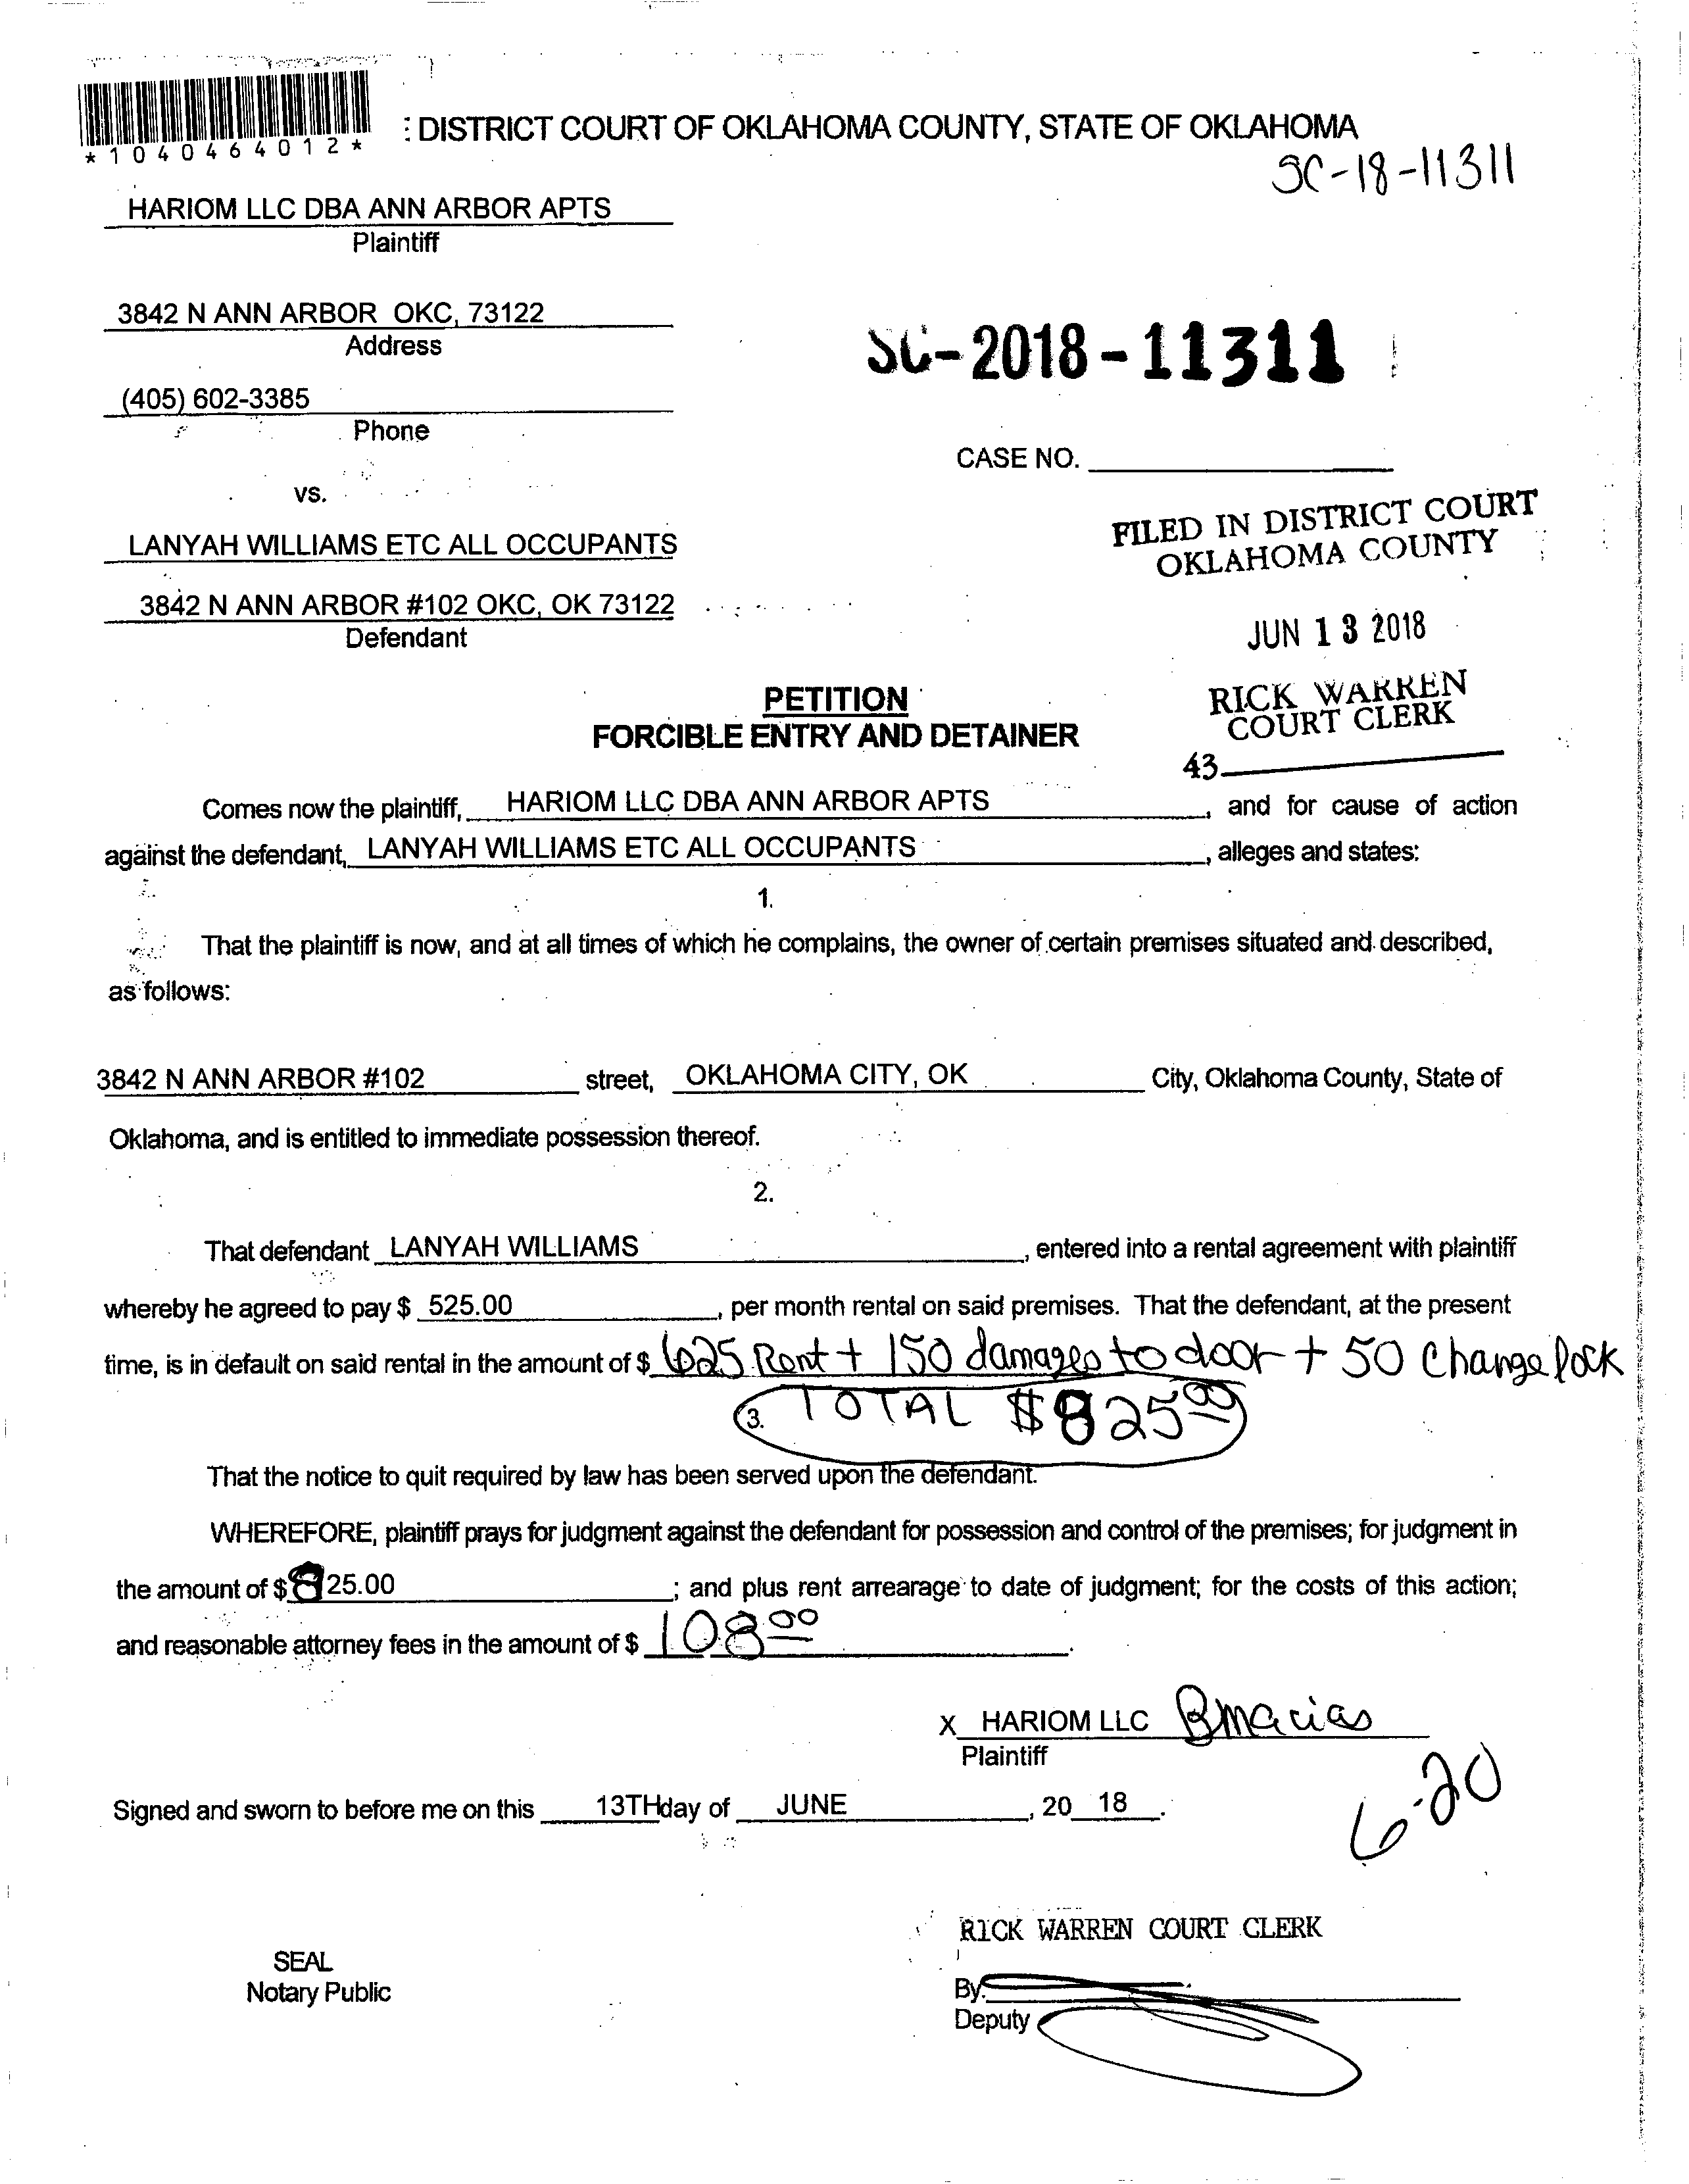 *1040464012*
: DISTRICT COURT OF OKLAHOMA COUNTY, STATE OF OKLAHOMA
SC-18-11311
HARIOM LLC DBA ANN ARBOR APTS
Plaintiff
3842 N ANN ARBOR OKC, 73122
Address
SC-2018-11311
(405) 602-3385
Phone
CASE NO.
vs.
FILED IN DISTRICT COURT
OKLAHOMA COUNTY
LANYAH WILLIAMS ETC ALL OCCUPANTS
3842 N ANN ARBOR #102 OKC, OK 73122
Defendant
JUN 13 2018
RICK WARREN
COURT CLERK
43
PETITION
FORCIBLE ENTRY AND DETAINER
Comes now the plaintiff, HARIOM LLC DBA ANN ARBOR APTS, and for cause of action
against the defendant, LANYAH WILLIAMS ETC ALL OCCUPANTS, alleges and states:
1.
That the plaintiff is now, and at all times of which he complains, the owner of certain premises situated and described,
as follows:
3842 N ANN ARBOR #102 street, OKLAHOMA CITY, OK City, Oklahoma County, State of
Oklahoma, and is entitled to immediate possession thereof.
2.
That defendant LANYAH WILLIAMS, entered into a rental agreement with plaintiff
whereby he agreed to pay $ 525.00, per month rental on said premises. That the defendant, at the present
time, is in default on said rental in the amount of $ 625 Rent + 150 damages to door + 50 Change lock
3. TOTAL $825.00
That the notice to quit required by law has been served upon the defendant.
WHEREFORE, plaintiff prays for judgment against the defendant for possession and control of the premises; for judgment in
the amount of $ 825.00; and plus rent arrearage to date of judgment; for the costs of this action;
and reasonable attorney fees in the amount of $ 108.00.
X HARIOM LLC BMacias
Plaintiff
6-20
Signed and sworn to before me on this 13TH day of JUNE, 20 18.
RICK WARREN COURT CLERK
SEAL
Notary Public
By:
Deputy